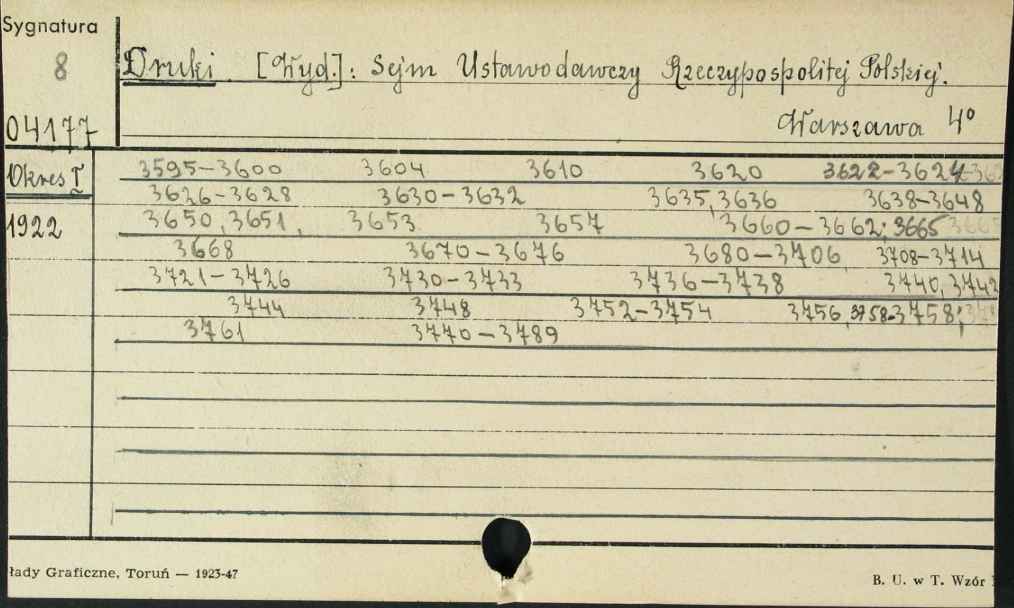 Sygnatura
8
Druki. [Wyd.]: Sejm Ustawodawczy Rzeczypospolitej Polskiej.
04177
Warszawa 4°
Okres I 3595-3600 3604 3610 3620 3622-3624
3626-3628 3630-3632 3635, 3636 3638-3648
1922 3650, 3651, 3653 3657 3660-3662; 3665
3668 3670-3676 3680-3706 3708-3714
3721-3726 3730-3733 3736-3738 3740, 3742
3744 3748 3752-3754 3756, 3758-3758;
3761 3770-3789
łady Graficzne, Toruń — 1923-47
B. U. w T. Wzór